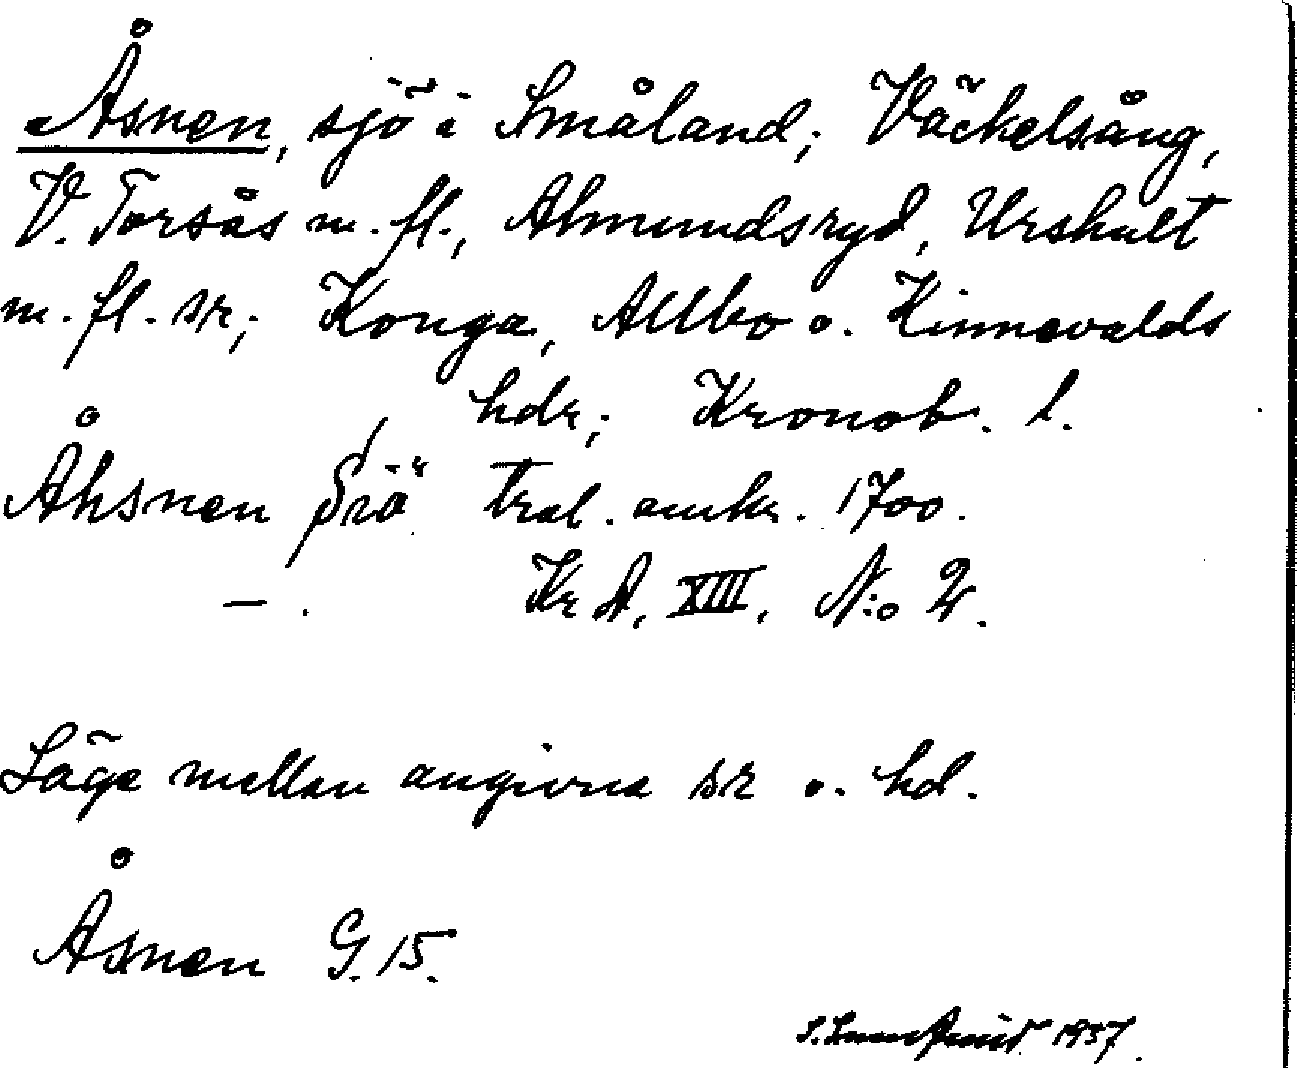 Åsnen, sjö i Småland; Väckelsång,
V. Torsås m. fl., Almundsryd, Urshult
m. fl. sr; Konga, Allbo o. Kinnevalds
hdr; Kronob. l.
Åhsnen Siö tral. omkr. 1700.
— . Kr A. XIII. N:o 2.
Läge mellan angivna sr o. hd.
Åsnen G. 15.
S. 1937.